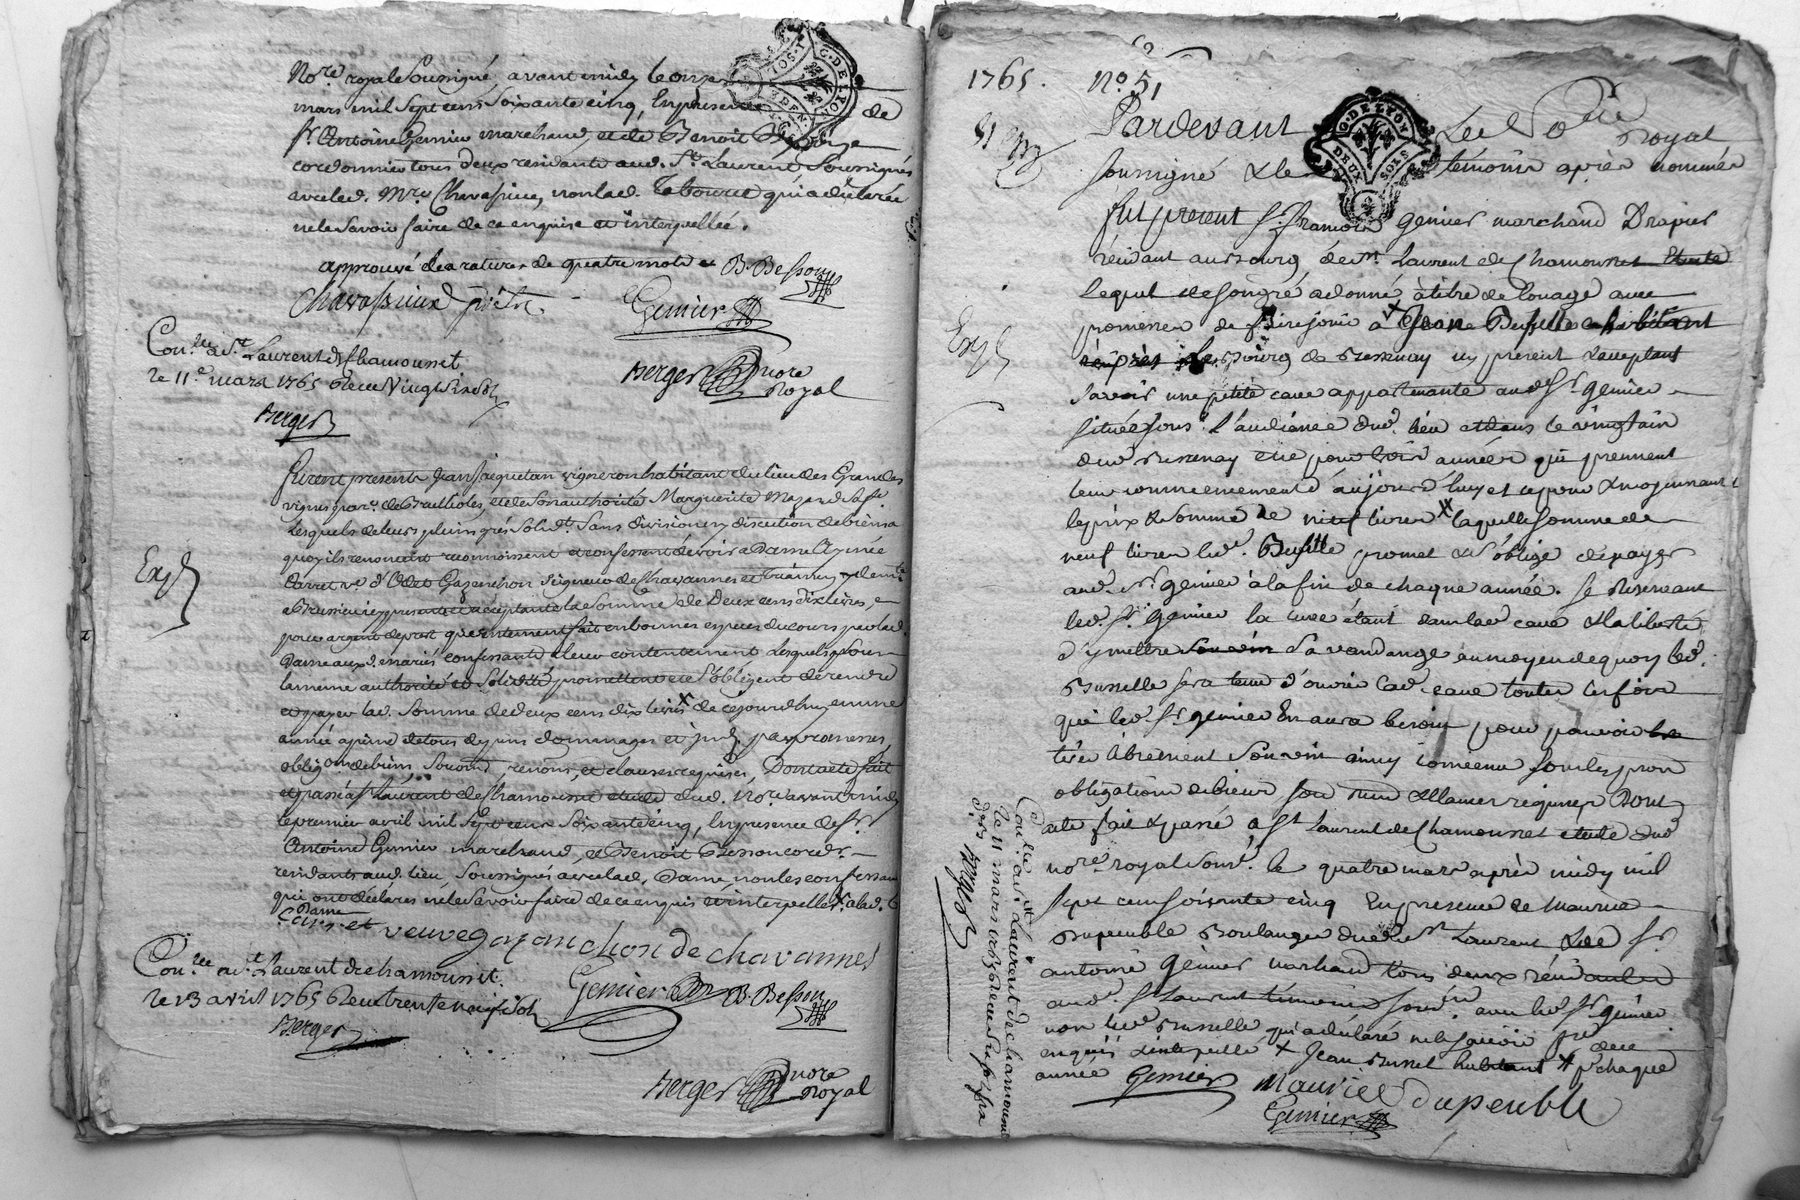 No.re royal Soussigné avant midy le onze
mars mil sept cens soixante cinq, En presence de
Sr. Antoine Genier marchand, et de Benoit
cordonnier tous deux residants aud. St. Laurent Soussignés
avec led. Mre. Chavassieu, non lad. qui a déclaré
ne le Savoir faire de ce enquise et interpellée.
approuvé les ratures de quatre mots B. Besson
chavassieux prêtre Genier
Con.lé a St Laurent de chamousset
le 11e. mars 1765 Receu Vingt six sols
Berger
Berger no.re Royal
Furent presents Jean Jaquetan vigneron habitant du lieu des Grandes
vignes par.e de Brullioles, et de Son authorité Marguerite Mazard Sa fe.
Lesquels de leurs pleins grés Solid.t Sans division ny discution de biens a
quoy ils renoncent reconnoissent et confessent devoir a Dame Aymée
ve. d'Odet Gazanchon Seigneur de Chavannes et
a Brussieu icy presente et acceptante la Somme de Deux cens dix livres,
pour argent de prest que presentement fait en bonnes especes du cours par lad.
Dame aux d. mariés confessants et leur contentement Lesquels Sous
la meme authorité et Solidité promettent et S'obligent de rendre
et payer lad. Somme de deux cens dix livres x de ce jourd'huy en une
année a peine de tous depens dommages et par promesses,
oblig.ons de biens Soumis.ons, renons, et clauses requises, Dont acte fait
et passé a St. Laurent de Chamousset etude dud. No.re avant midy
le premier avril mil Sept cens Soixante cinq, En presence de Sr.
Antoine Genier marchand, et Benoit Besson cord.r
residants aud. lieu Soussignés avec lad. Dame, non les confessants
qui ont déclarés ne le Savoir faire de ce enquis et interpellés. x a lad.
Dame
et veuve gazanchon de chavannes
Genier B. Besson
Con.lée a St. Laurent de chamousset.
le 13 avril 1765 Receu trente neuf sols
Berger
Berger no.re Royal
Exp
1765. No. 51
G. DE LYON
DEUX SOLS
Pardevant Le No.re Royal
soussigné & les témoins après nommés
fut present Sr. François Genier marchand Drapier
résidant au bourg de St. Laurent de Chamousset
Lequel de Son gré a donné à titre de louage avec
promesse de faire jouir a x
Le Bourg de Bessenay icy present & acceptant
Savoir une petite cave appartenante aud. Sr. Genier
située sous l'audience dud. lieu et dans le vingtain
dud. Bessenay et ce pour trois années qui prennent
leur commencement d'aujourd'huy et ce pour & moyennant
le prix & somme de neuf livres xx laquelle somme de
neuf livres led. promet & s'oblige de payer
aud. Sr. Genier à la fin de chaque année. Se Reservant
led. Sr. Genier la cuve étant dans lad. cave & la liberté
d'y mettre Sa vandange au moyen de quoy led.
Brusselle sera tenu d'ouvrir lad. cave toutes les fois
que led. Sr. Genier En aura besoin pour pouvoir
tirer librement Son vin ainsy convenu sous les prom.
obligations de biens & clauses requises Dont
acte fait & passé a St Laurent de Chamousset etude dud.
no.re royal Sous.é le quatre mars après midy mil
Sept cens soixante cinq En presence de Maurice
Dupeuble Boulanger dud. St. Laurent & de Sr.
antoine Genier marchand tous deux résidants
aud. St Laurent témoins avec led. Sr. Genier
non led. Brusselle qui a déclaré ne le savoir faire de ce
enquis & interpellé x Jean Brussel habitant xx pr. chaque
année Genier Maurice Dupeuble
Genier
Exp
Con.lé a St. Laurent de chamousset
le 11 mars 1765 Receu
Berger